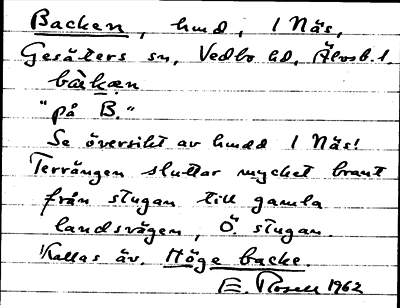 Backen, hmd, 1 Näs,
Gesäters sn, Vedbo hd, Älvsb. l.
bàkæn
"på B."
Se översikt av hmdd 1 Näs!
Terrängen sluttar mycket brant
från stugan till gamla
landsvägen, Ö. stugan.
Kallas äv. Höge backe.
E. Rosell 1962